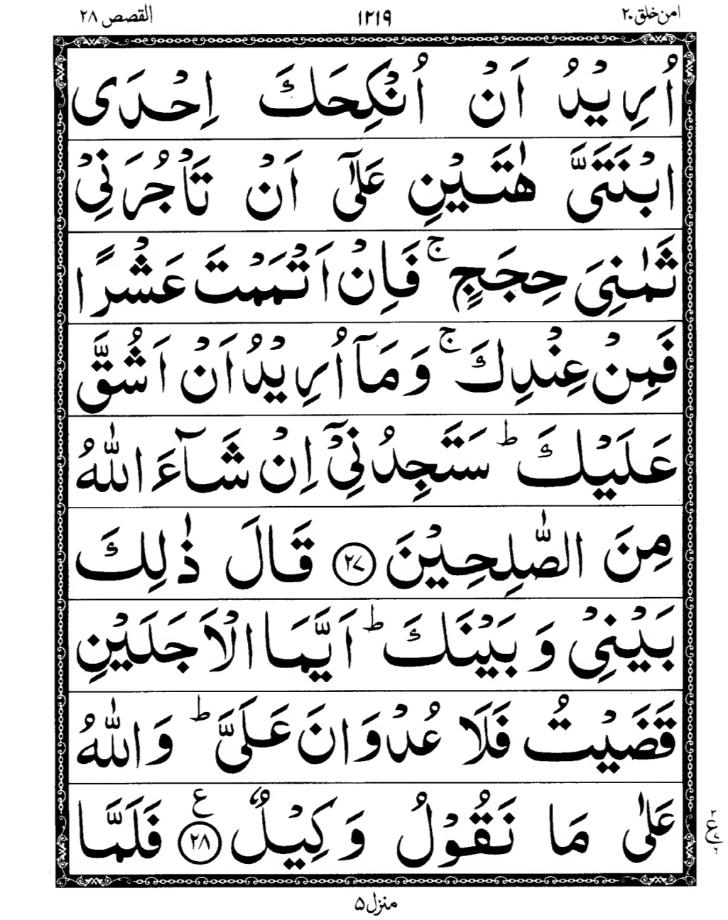 امن خلق ۲۰ ۱۲۱۹ القصص ۲۸
اُرِيْدُ اَنْ اُنْكِحَكَ اِحْدَى
ابْنَتَىَّ هٰتَيْنِ عَلٰٓى اَنْ تَاْجُرَنِيْ
ثَمٰنِيَ حِجَجٍ ۚ فَاِنْ اَتْمَمْتَ عَشْرًا
فَمِنْ عِنْدِكَ ۚ وَمَآ اُرِيْدُ اَنْ اَشُقَّ
عَلَيْكَ ؕ سَتَجِدُنِيْٓ اِنْ شَآءَ اللّٰهُ
مِنَ الصّٰلِحِيْنَ ۲۷ قَالَ ذٰلِكَ
بَيْنِيْ وَبَيْنَكَ ؕ اَيَّمَا الْاَجَلَيْنِ
قَضَيْتُ فَلَا عُدْوَانَ عَلَىَّ ؕ وَاللّٰهُ
عَلٰى مَا نَقُوْلُ وَكِيْلٌ ۲۸ ع فَلَمَّا
منزل ۵